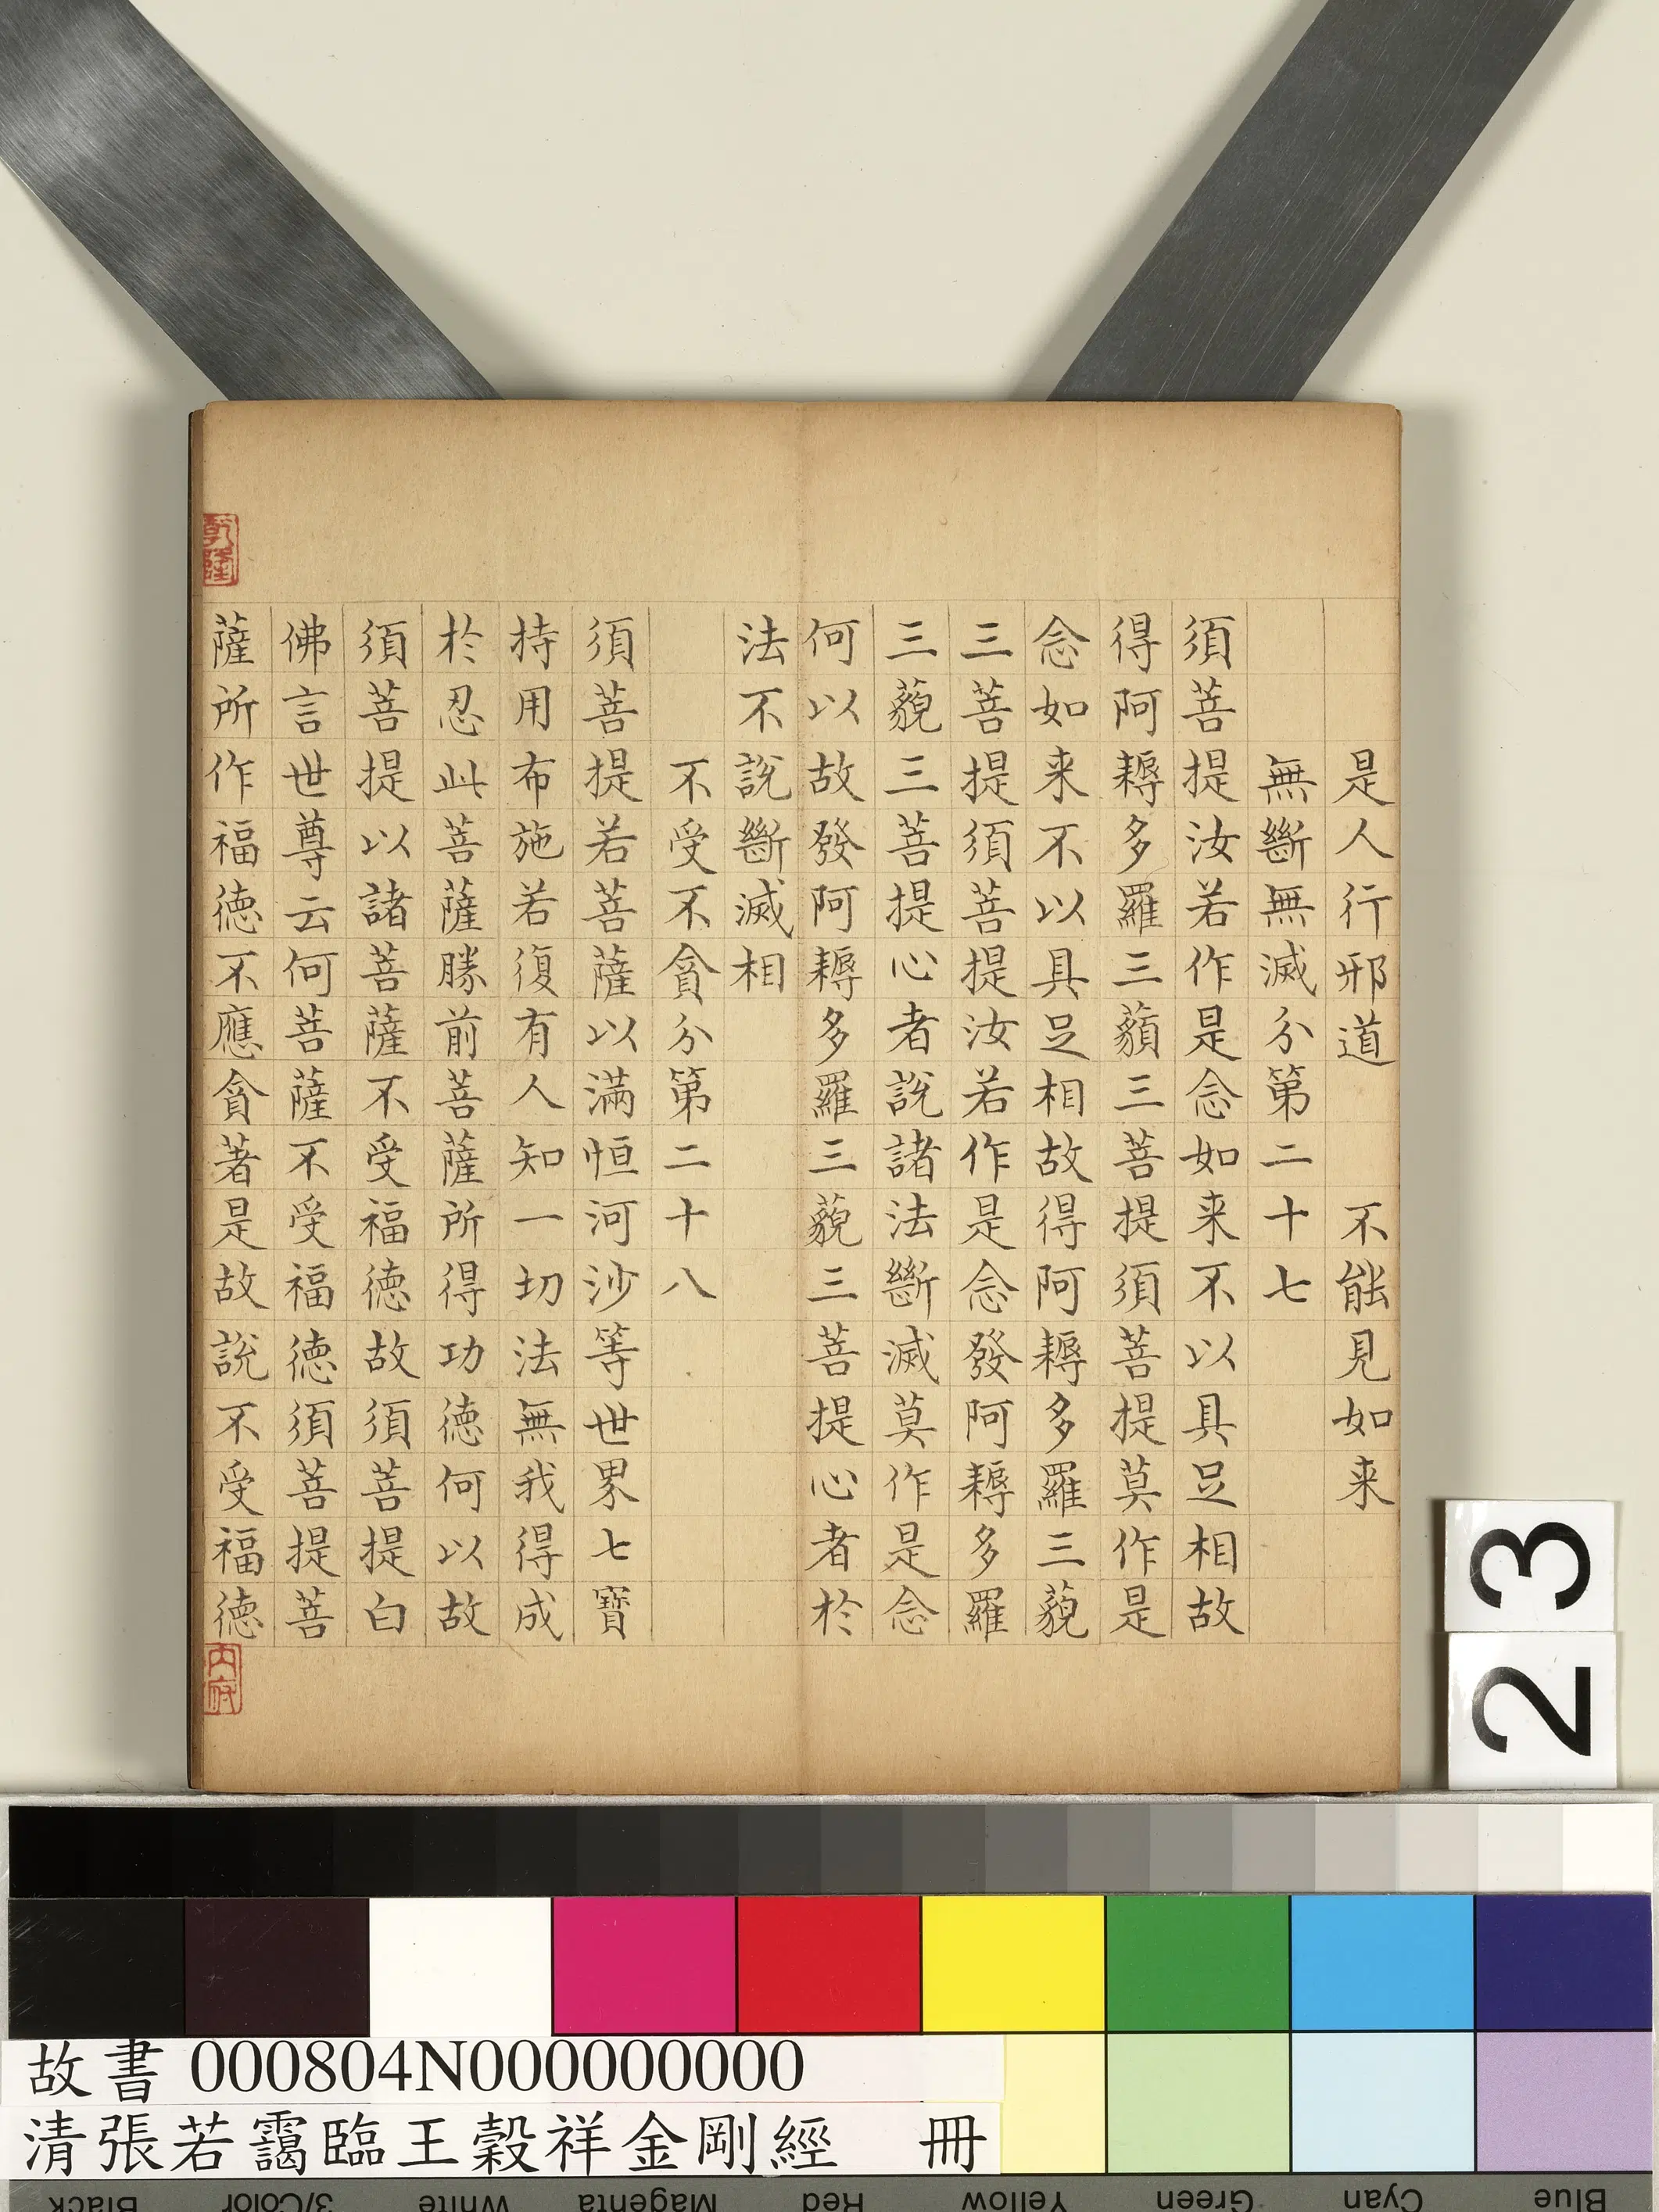 是人行邪道　不能見如来
無斷無滅分第二十七
須菩提汝若作是念如来不以具足相故
得阿耨多羅三藐三菩提須菩提莫作是
念如来不以具足相故得阿耨多羅三藐
三菩提須菩提汝若作是念發阿耨多羅
三藐三菩提心者說諸法斷滅莫作是念
何以故發阿耨多羅三藐三菩提心者於
法不說斷滅相
不受不貪分第二十八
須菩提若菩薩以滿恒河沙等世界七寶
持用布施若復有人知一切法無我得成
於忍此菩薩勝前菩薩所得功德何以故
須菩提以諸菩薩不受福德故須菩提白
佛言世尊云何菩薩不受福德須菩提菩
薩所作福德不應貪著是故說不受福德
乾隆
内府
23
故書 000804N000000000
清張若靄臨王穀祥金剛經　冊
Black
3/Color
White
Magenta
Red
Yellow
Green
Cyan
Blue